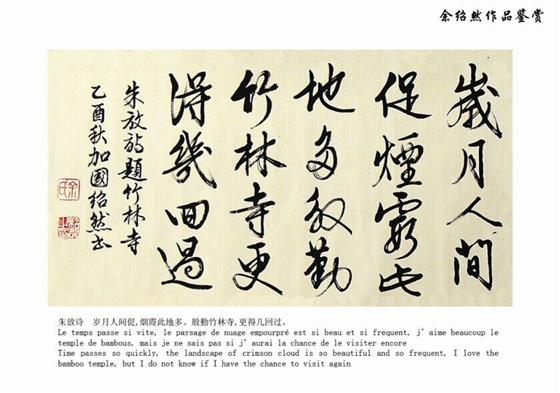 余绍然作品鉴赏
歲月人間
促煙霞此
地多殷勤
竹林寺更
得幾回過
朱放詩題竹林寺
乙酉秋加國紹然書
余氏
朱放诗 岁月人间促,烟霞此地多。殷勤竹林寺,更得几回过。
Le temps passe si vite, le paysage de nuage empourpré est si beau et si frequent, j' aime beaucoup le
temple de bambous, mais je ne sais pas si j' aurai la chance de le visiter encore
Time passes so quickly, the landscape of crimson cloud is so beautiful and so frequent, I love the
bamboo temple, but I do not know if I have the chance to visit again